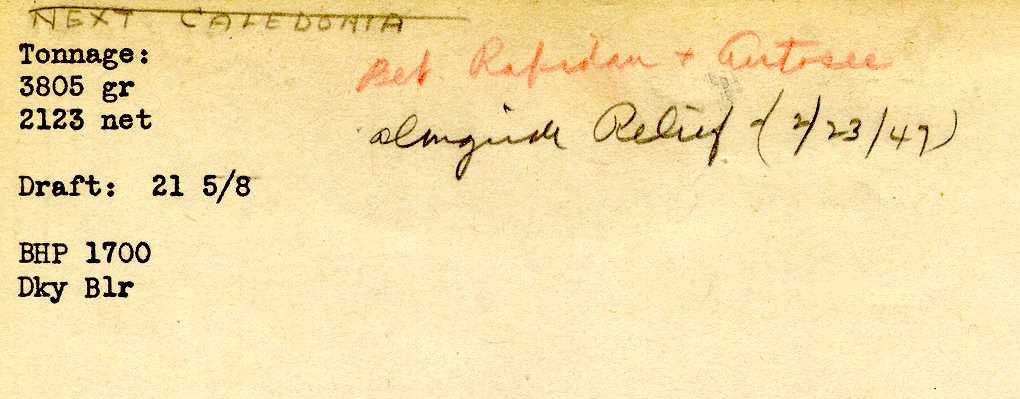 NEXT CALEDONIA
Tonnage:
3805 gr
2123 net
Draft: 21 5/8
BHP 1700
Dky Blr
Bet Rapidan + Antosee
alongside Relief - (2/23/47)